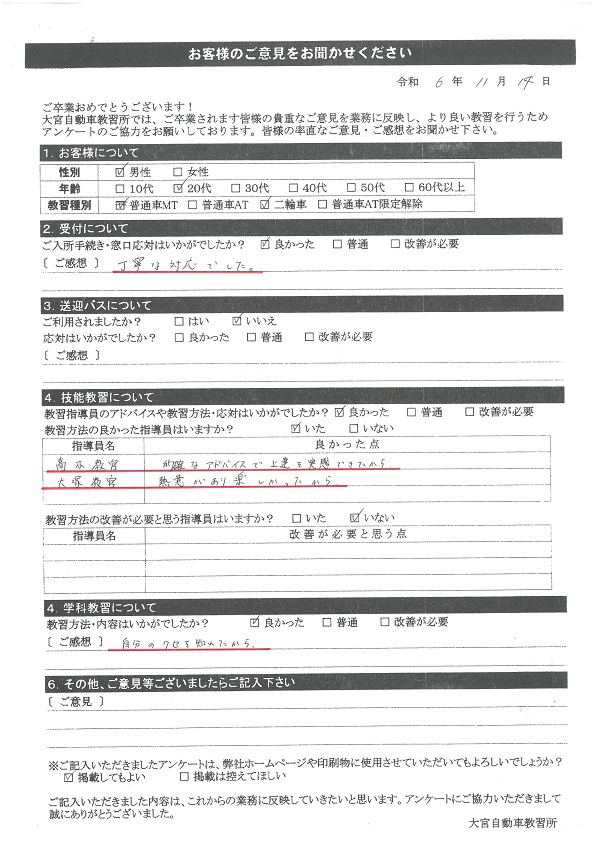 お客様のご意見をお聞かせください
令和 6 年 11 月 14 日
ご卒業おめでとうございます！
大宮自動車教習所では、ご卒業されます皆様の貴重なご意見を業務に反映し、より良い教習を行うため
アンケートのご協力をお願いしております。皆様の率直なご意見・ご感想をお聞かせ下さい。
1. お客様について
性別 ☑男性 □女性
年齢 □10代 ☑20代 □30代 □40代 □50代 □60代以上
教習種別 ☑普通車MT □普通車AT ☑二輪車 □普通車AT限定解除
2. 受付について
ご入所手続き・窓口応対はいかがでしたか？ ☑良かった □普通 □改善が必要
〔 ご感想 〕 丁寧な対応でした。
3. 送迎バスについて
ご利用されましたか？ □はい ☑いいえ
応対はいかがでしたか？ □良かった □普通 □改善が必要
〔 ご感想 〕
4. 技能教習について
教習指導員のアドバイスや教習方法・応対はいかがでしたか？ ☑良かった □普通 □改善が必要
教習方法の良かった指導員はいますか？ ☑いた □いない
指導員名 良かった点
高木教官 的確なアドバイスで上達を実感できたから。
大塚教官 熱意があり楽しかったから。
教習方法の改善が必要と思う指導員はいますか？ □いた ☑いない
指導員名 改善が必要と思う点
4. 学科教習について
教習方法・内容はいかがでしたか？ ☑良かった □普通 □改善が必要
〔 ご感想 〕 自分のクセを知れたから。
6. その他、ご意見等ございましたらご記入下さい
〔 ご意見 〕
※ご記入いただきましたアンケートは、弊社ホームページや印刷物に使用させていただいてもよろしいでしょうか？
☑掲載してもよい □掲載は控えてほしい
ご記入いただきました内容は、これからの業務に反映していきたいと思います。アンケートにご協力いただきまして
誠にありがとうございました。
大宮自動車教習所